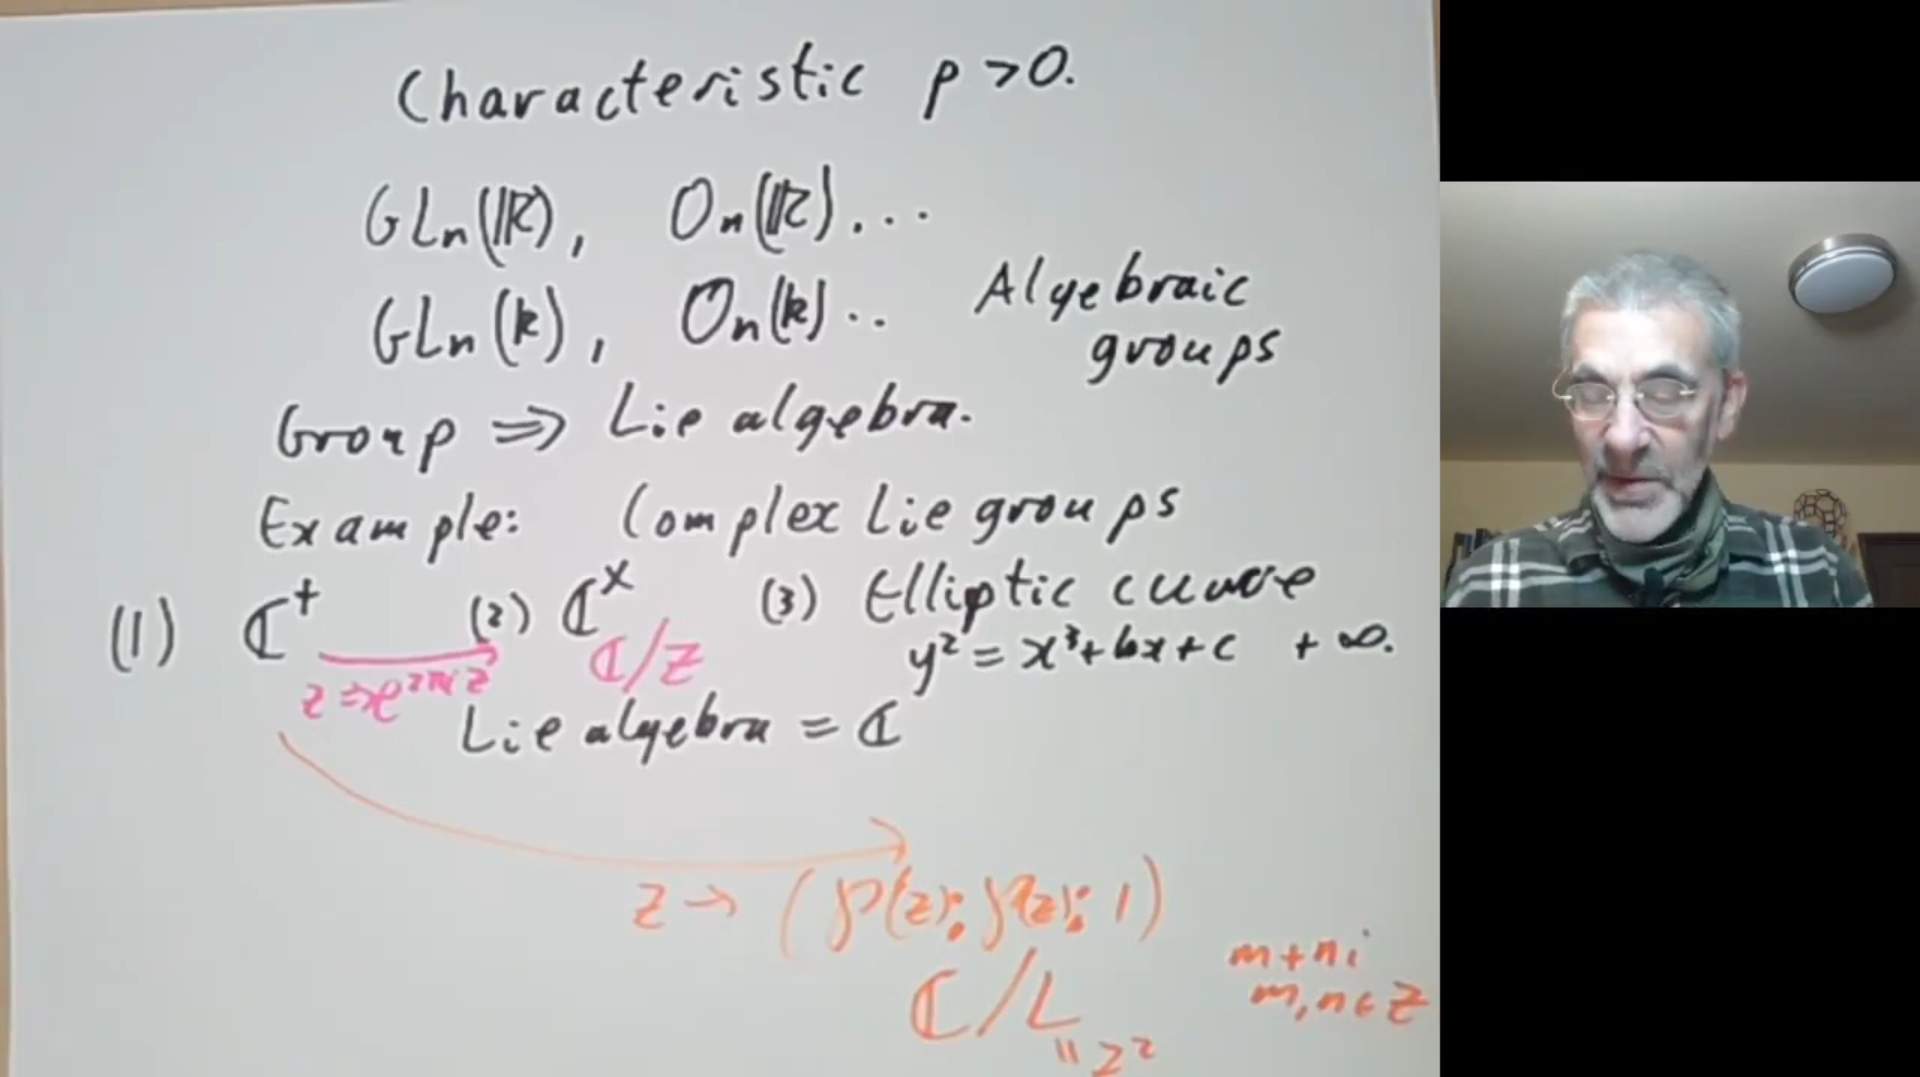 Characteristic p>0.
GLn(ℝ), On(ℝ)...
GLn(k), On(k).. Algebraic
groups
Group ⇒ Lie algebra.
Example: Complex Lie groups
(1) ℂ⁺ (2) ℂˣ (3) Elliptic curve
y² = x³+bx+c + ∞.
z⇒e²πiz ℂ/Z
Lie algebra = ℂ
z → (℘(z); ℘'(z); 1)
m+ni
m,n∈Z
ℂ/L
" Z²